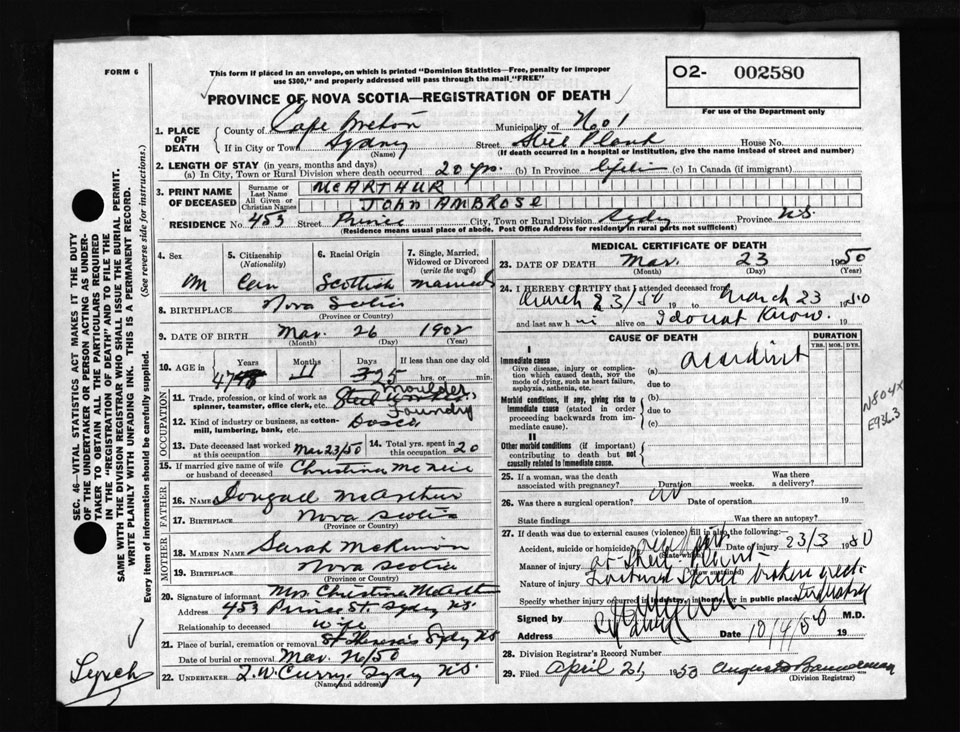 FORM 6
This form if placed in an envelope, on which is printed "Dominion Statistics—Free, penalty for improper
use $300," and properly addressed will pass through the mail "FREE"
PROVINCE OF NOVA SCOTIA—REGISTRATION OF DEATH
02- 002580
For use of the Department only
1. PLACE OF DEATH County of Cape Breton Municipality of No 1
If in City or Town Sydney (Name) Street Steel Plant House No.
(If death occurred in a hospital or institution, give the name instead of street and number)
2. LENGTH OF STAY (in years, months and days)
(a) In City, Town or Rural Division where death occurred 20 yrs. (b) In Province (c) In Canada (if immigrant)
3. PRINT NAME OF DECEASED Surname or Last Name MCARTHUR
All Given or Christian Names JOHN AMBROSE
RESIDENCE No. 453 Street Prince City, Town or Rural Division Sydney Province N.S.
(Residence means usual place of abode. Post Office Address for residents in rural parts not sufficient)
4. Sex M
5. Citizenship (Nationality) Can
6. Racial Origin Scottish
7. Single, Married, Widowed or Divorced (write the word) Married
8. BIRTHPLACE Nova Scotia
(Province or Country)
9. DATE OF BIRTH Mar. 26 1902
(Month) (Day) (Year)
10. AGE in Years 47 Months 11 Days 25 If less than one day old hrs. or min.
OCCUPATION
11. Trade, profession, or kind of work as spinner, teamster, office clerk, etc. Steel Worker Moulder
12. Kind of industry or business, as cotton-mill, lumbering, bank, etc. Dosco Foundry
13. Date deceased last worked at this occupation Mar 23/50
14. Total yrs. spent in this occupation 20
15. If married give name of wife or husband of deceased Christina McNeil
FATHER
16. Name Dougall McArthur
17. Birthplace Nova Scotia
(Province or Country)
MOTHER
18. MAIDEN NAME Sarah McKinnon
19. BIRTHPLACE Nova Scotia
(Province or Country)
20. Signature of informant Mrs Christina McArthur
Address 453 Prince St. Sydney N.S.
Relationship to deceased Wife
21. Place of burial, cremation or removal St Theresa's Sydney NS
Date of burial or removal Mar. 26/50
22. UNDERTAKER T.W. Curry, Sydney N.S.
(Name and address)
MEDICAL CERTIFICATE OF DEATH
23. DATE OF DEATH Mar. 23 1950
(Month) (Day) (Year)
24. I HEREBY CERTIFY that I attended deceased from
March 23/50 19 to March 23 1950
and last saw h im alive on I do not know. 19
CAUSE OF DEATH
DURATION
YRS. MOS. DYS.
I
Immediate cause
Give disease, injury or complication which caused death, not the mode of dying, such as heart failure, asphyxia, asthenia, etc.
(a) accident
due to
Morbid conditions, if any, giving rise to immediate cause (stated in order proceeding backwards from immediate cause).
(b)
due to
(c)
II
Other morbid conditions (if important) contributing to death but not causally related to immediate cause.
N804X
E936.3
25. If a woman, was the death associated with pregnancy? Duration weeks. Was there a delivery?
26. Was there a surgical operation? no Date of operation 19
State findings Was there an autopsy?
27. If death was due to external causes (violence) fill in also the following:—
Accident, suicide or homicide? accident (State which) Date of injury 23/3 1950
Manner of injury at Steel Plant
(How sustained)
Nature of injury Fractured Skull broken neck
Specify whether injury occurred in industry, in home or in public place Industry
Signed by M.D.
Address Sydney Date 18/4/50 19
28. Division Registrar's Record Number
29. Filed April 21, 1950
(Division Registrar)
SEC. 46—VITAL STATISTICS ACT MAKES IT THE DUTY
OF THE UNDERTAKER OR PERSON ACTING AS UNDER-
TAKER TO OBTAIN ALL THE PARTICULARS REQUIRED
IN THE "REGISTRATION OF DEATH" AND TO FILE THE
SAME WITH THE DIVISION REGISTRAR WHO SHALL ISSUE THE BURIAL PERMIT.
WRITE PLAINLY WITH UNFADING INK. THIS IS A PERMANENT RECORD.
Every item of information should be carefully supplied. (See reverse side for instructions.)
Lynch